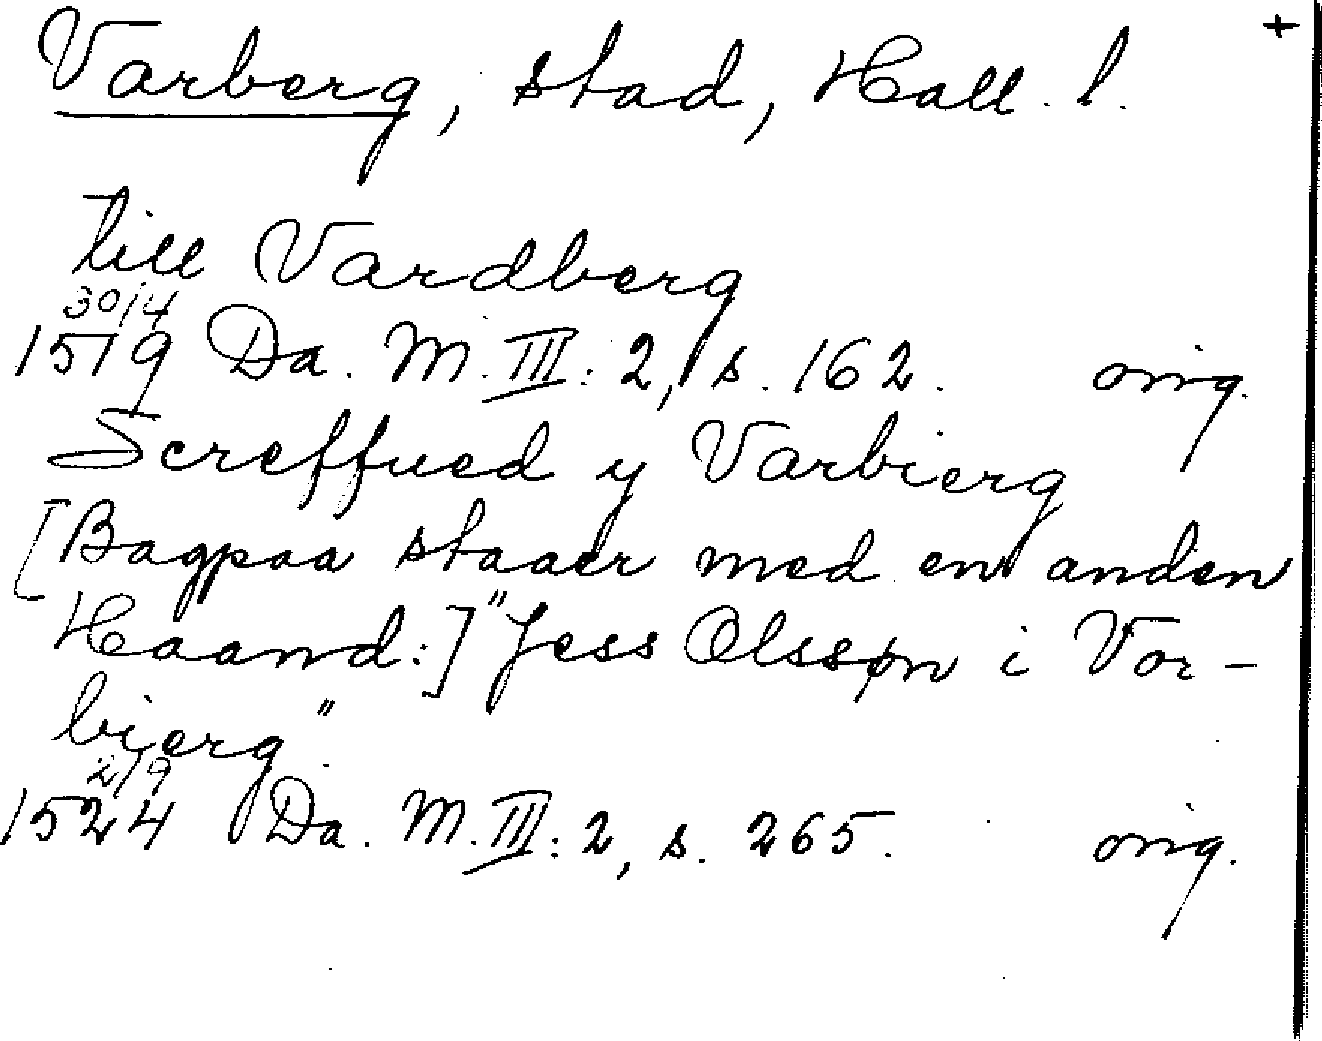 +
Varberg, stad, Hall. l.
till Vardberg
30/4
1519 Da. M. III: 2, s. 162. orig.
Screffued y Varbierg
[Bagpaa staaer med en anden
Haand:] "Jess Olssøn i Vor-
bierg".
2/9
1524 Da. M. III: 2, s. 265. orig.